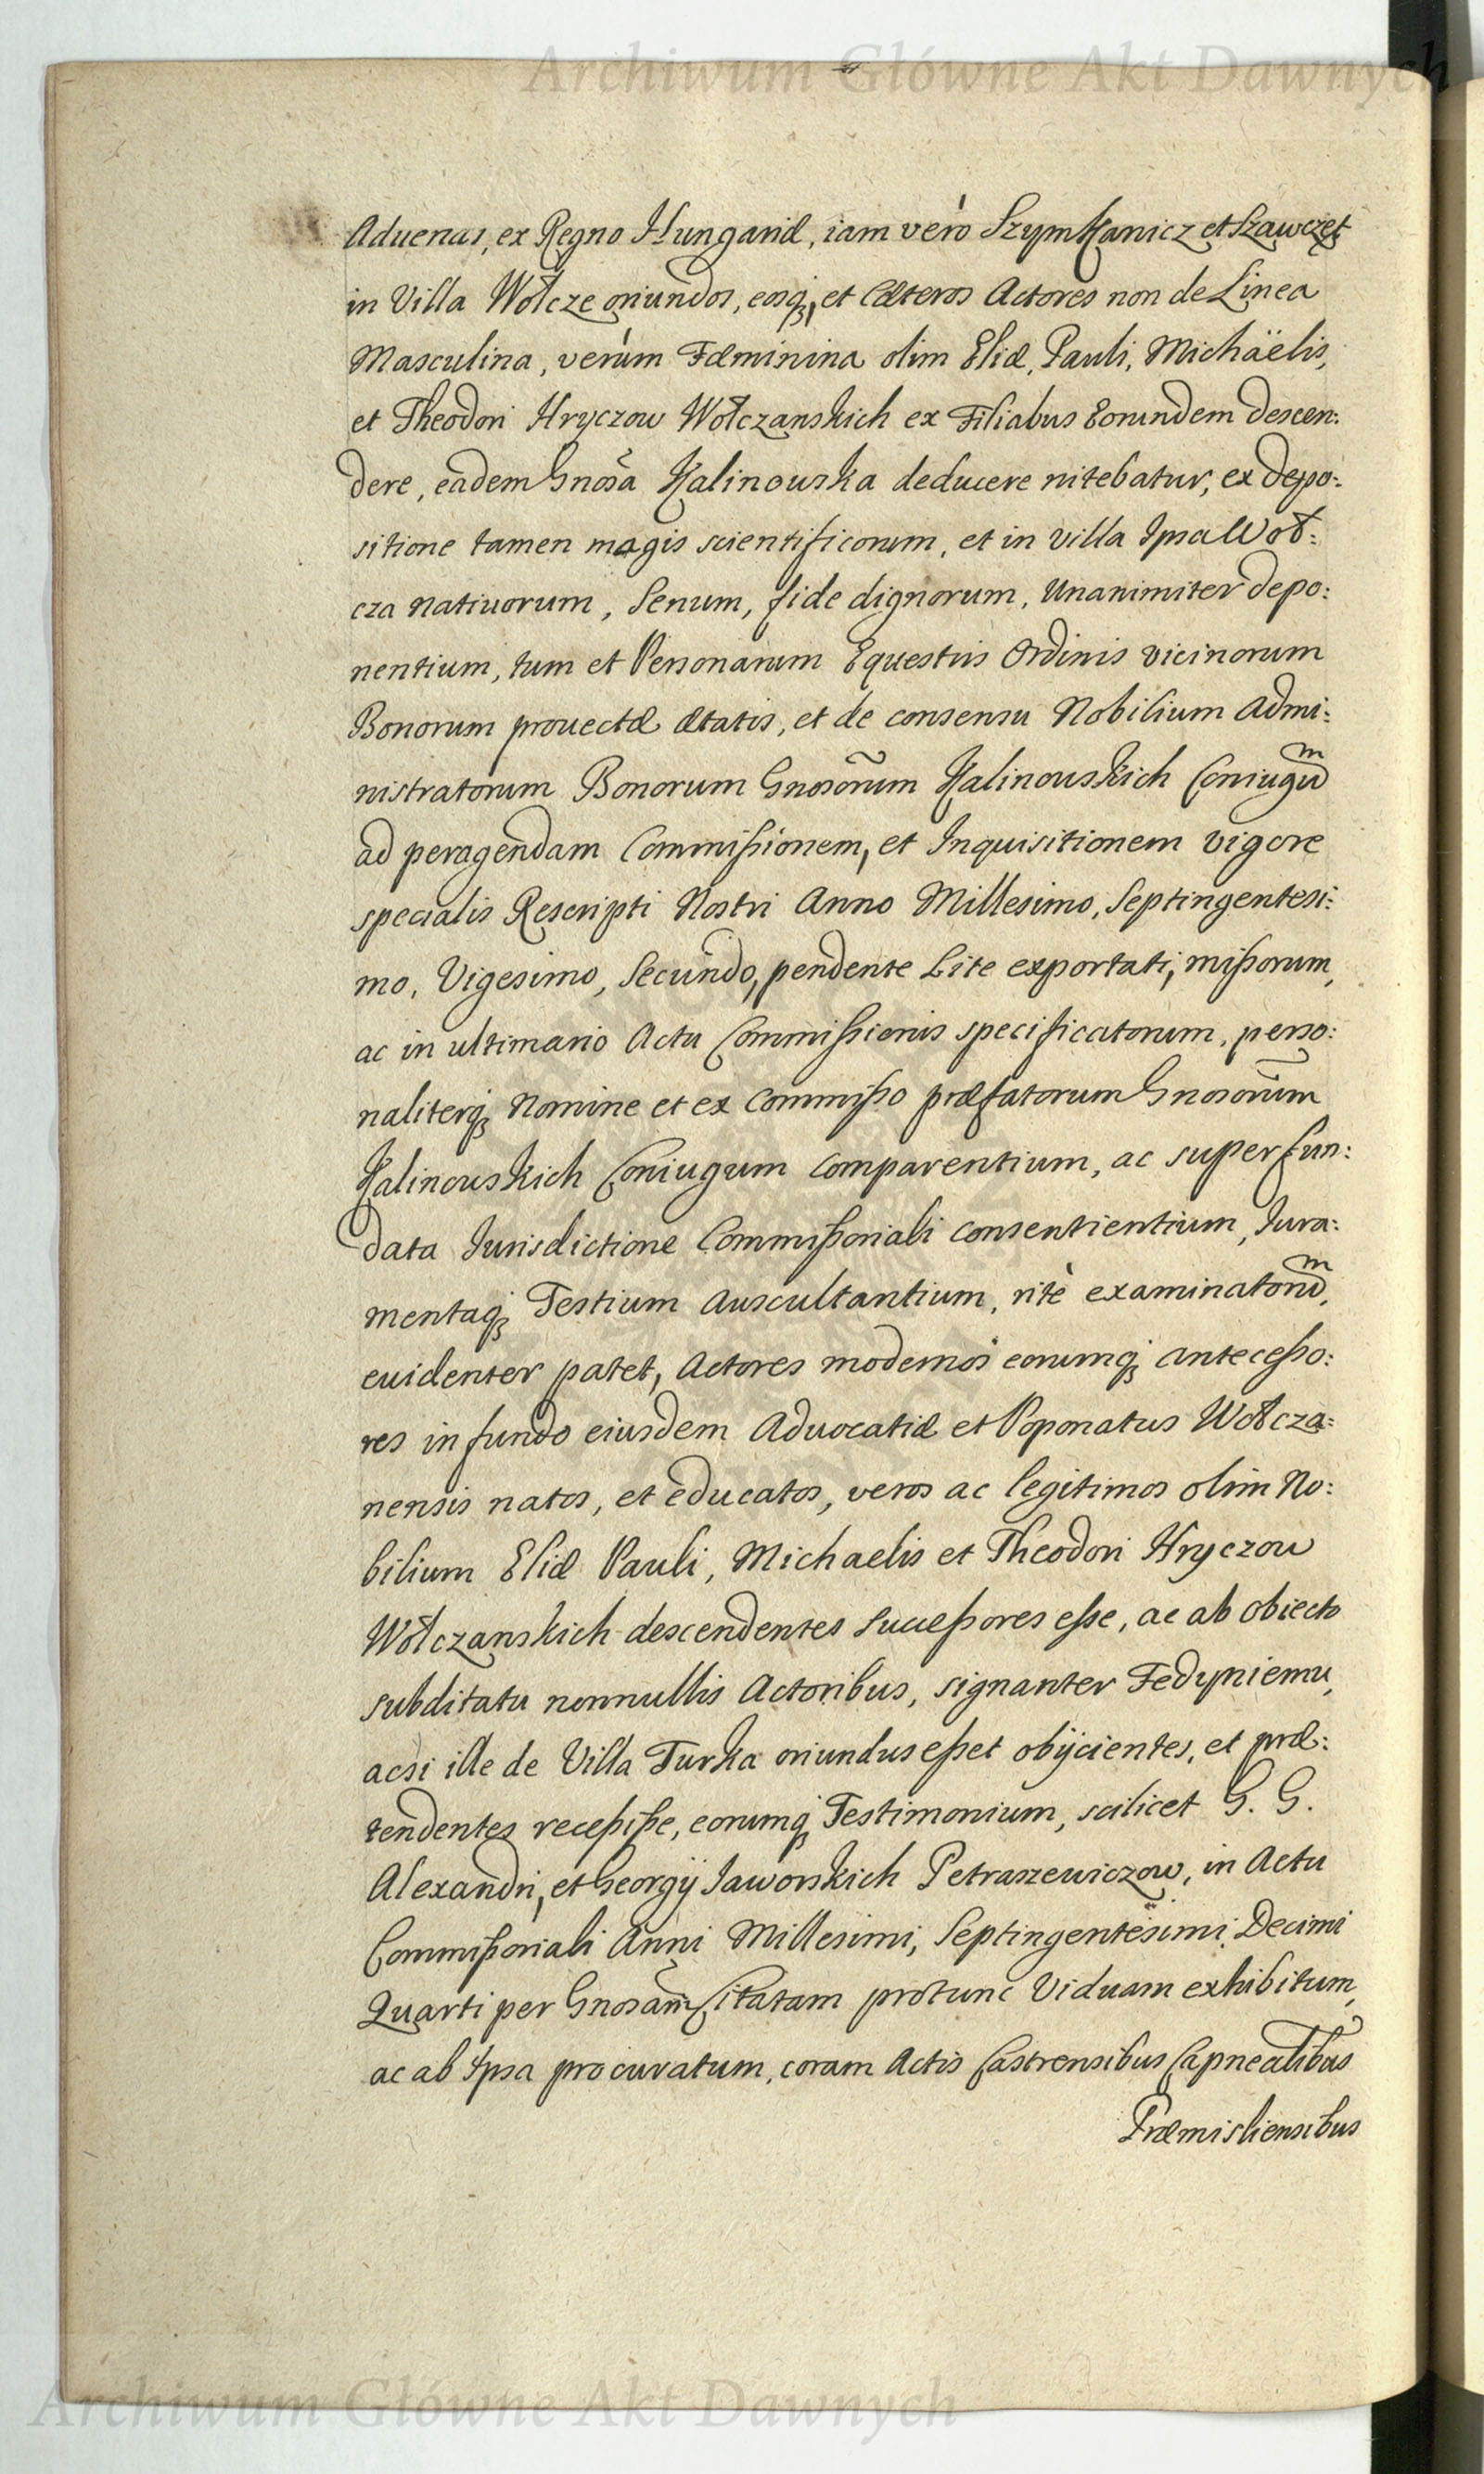 Archiwum Główne Akt Dawnych
Aduenas, ex Regno Hungariæ, iam verò Szymkanicz et Szawczęt
in Villa Wołcze oriundos, eosq;, et Cæteros Actores non de Linea
Masculina, verùm Fæminina olim Eliæ, Pauli, Michäelis,
et Theodori Hryczow Wołczanskich ex Filiabus Eorundem descen:
dere, eadem Gnosa Kalinowska deducere nitebatur, ex depo:
sitione tamen magis scientificorum, et in Villa Ipsa Woł:
cza nativorum, Senum, fide dignorum, Unanimiter depo:
nentium, tum et Personarum Equestris Ordinis vicinorum
Bonorum prouectæ ætatis, et de consensu Nobilium Admi:
nistratorum Bonorum Gnosorum Kalinouskich Coniugū
ad peragendam Commißionem, et Inquisitionem vigore
specialis Rescripti Nostri Anno Millesimo, Septingentesi:
mo, Vigesimo, Secundo, pendente Lite exportati, mißorum,
ac in ultimario Actu Commißionis specificatorum, perso:
naliterq; Nomine et ex Commißo præfatorum Gnosorum
Kalinouskich Coniugum comparentium, ac super fun:
data Jurisdictione Commißoriali consentientium, Jura:
mentaq; Testium Auscultantium, ritè examinatorū,
euidenter patet, Actores modernos eorumq; anteceßo:
res in fundo eiusdem Aduocatiæ et Poponatus Wołcza:
nensis natos, et educatos, veros ac legitimos olim No:
bilium Eliæ Pauli, Michaelis et Theodori Hryczow
Wołczanskich descendentes Succeßores eße, ac ab obiecto
subditatu nonnullis Actoribus, signanter Fedyniemu,
acsi ille de Villa Turka oriundus eßet obijcientes, et præ:
tendentes receßiße, eorumq; Testimonium, scilicet G. G.
Alexandri, et Georgij Jaworskich Petraszewiczow, in Actu
Commißoriali Anni Millesimi, Septingentesimi Decimi
Quarti per Gnosam Citatam protunc Viduam exhibitum,
ac ab Ipsa procuratum, coram Actis Castrensibus Capnealibus
Præmisliensibus
Archiwum Główne Akt Dawnych